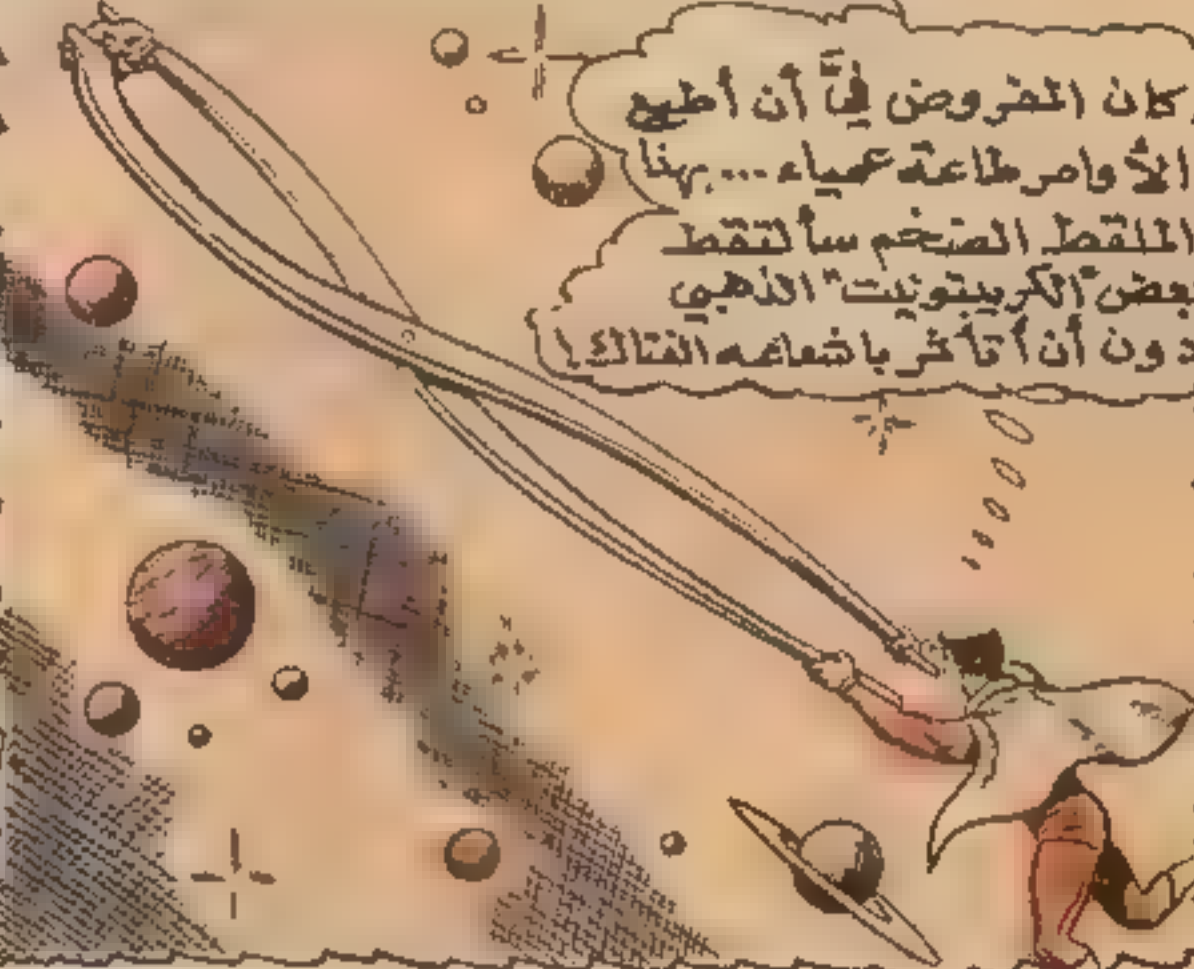 كان المفروض فيَّ أن أطيع
الأوامر طاعة عمياء... بهذا
الملقط الضخم سألتقط
بعض "الكريبتونيت" الذهبي
دون أن أتأثر بإشعاعه الفتاك!